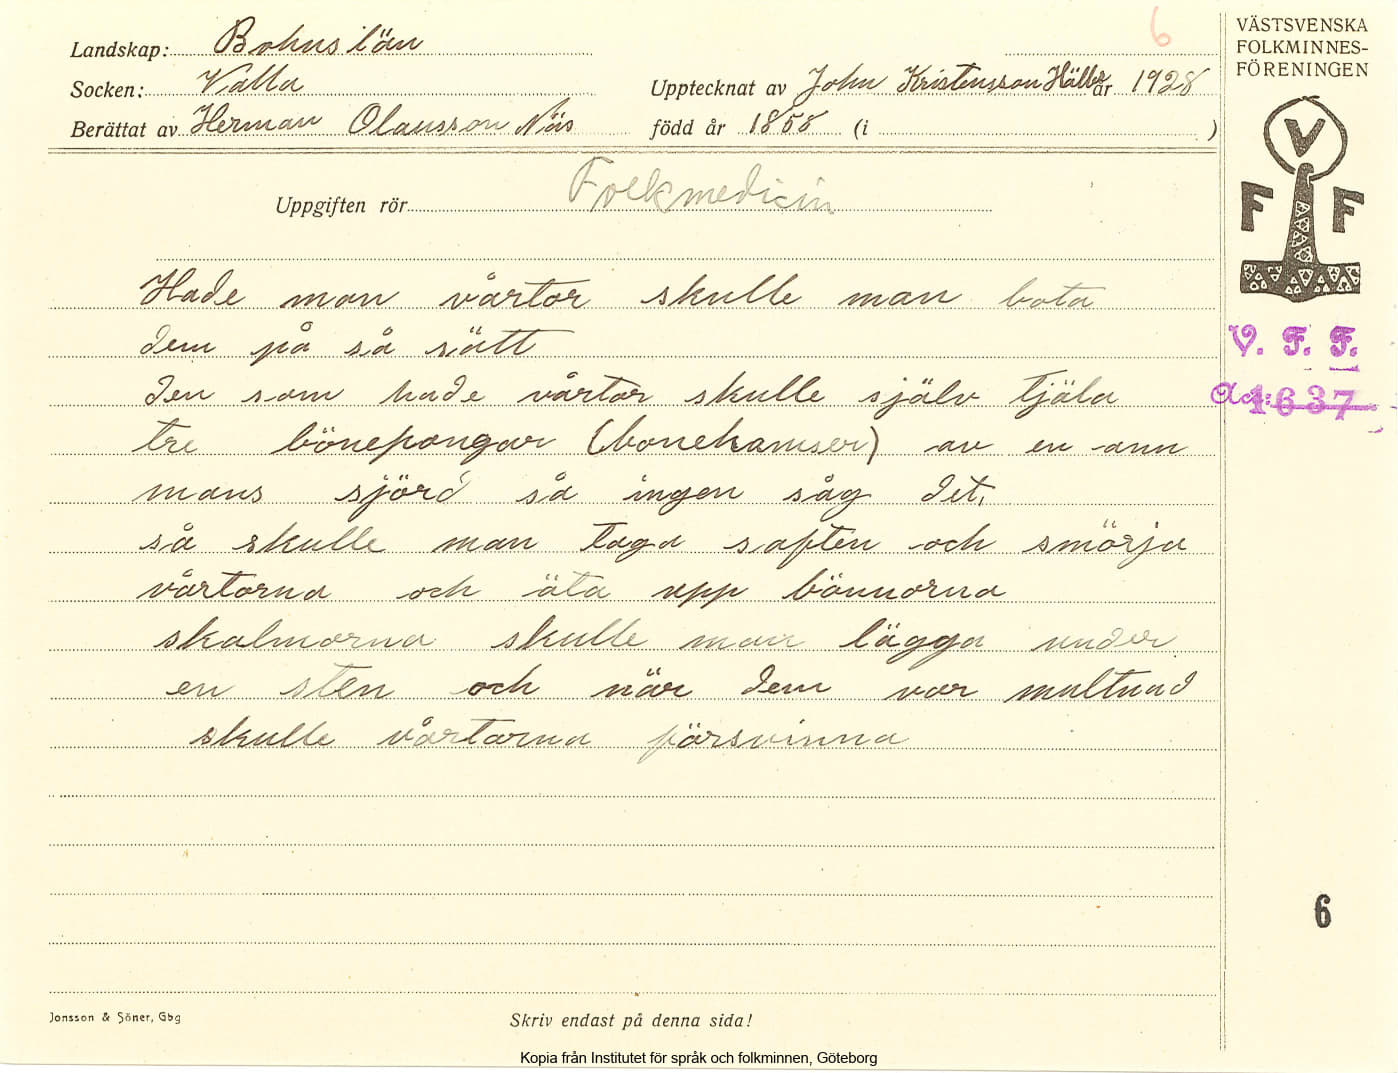 6
Landskap: Bohuslän
Socken: Valla
Upptecknat av John Kristensson Hälle år 1928
Berättat av Herman Olausson Näs född år 1855 (i )
Uppgiften rör Folkmedicin
Hade man vårtor skulle man bota
dem på så sätt
den som hade vårtor skulle själv tjäla
tre bönepongar (bonehamser) av en ann
mans sjörd så ingen såg det,
så skulle man taga saften och smörja
vårtorna och äta upp bönnorna
skalmorna skulle man lägga under
en sten och när dem var multnad
skulle vårtorna försvinna
VÄSTSVENSKA
FOLKMINNES-
FÖRENINGEN
V
F F
V. F. F.
1637
6
Jonsson & Söner, Gbg
Skriv endast på denna sida!
Kopia från Institutet för språk och folkminnen, Göteborg